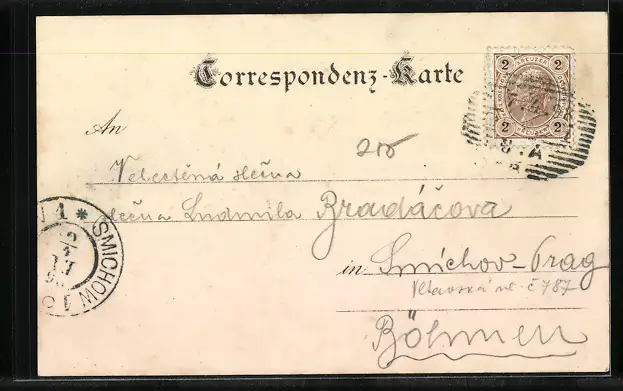 Correspondenz-Karte
2 KREUZER 2
2 2
An
215
Velectěná slečna
slečna Ludmila Bradáčova
in Smichov-Prag
Vltavská ul. č 787
Böhmen
SMICHOW 1 *